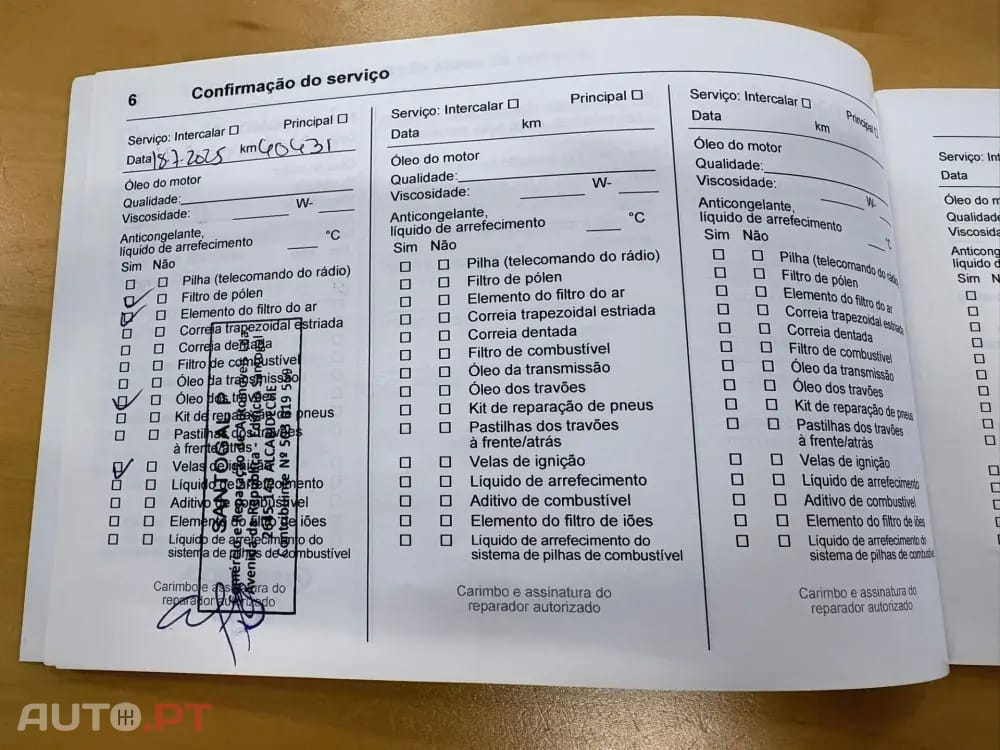 6 Confirmação do serviço
Serviço: Intercalar ☐ Principal ☐
Data 18.7.2025 km 40431
Óleo do motor
Qualidade:
Viscosidade: W-
Anticongelante,
líquido de arrefecimento °C
Sim Não
Pilha (telecomando do rádio)
Filtro de pólen
Elemento do filtro do ar
Correia trapezoidal estriada
Correia dentada
Filtro de combustível
Óleo da transmissão
Óleo dos travões
Kit de reparação de pneus
Pastilhas dos travões
à frente/atrás
Velas de ignição
Líquido de arrefecimento
Aditivo de combustível
Elemento do filtro de iões
Líquido de arrefecimento do
sistema de pilhas de combustível
Carimbo e assinatura do
reparador autorizado
SANTOGAL P
Comércio e Reparação de
Avenida da República - Edifício Santogal
2645-143 ALCABIDECHE
Contribuinte Nº 503 819 509
Serviço: Intercalar ☐ Principal ☐
Data km
Óleo do motor
Qualidade:
Viscosidade: W-
Anticongelante,
líquido de arrefecimento °C
Sim Não
Pilha (telecomando do rádio)
Filtro de pólen
Elemento do filtro do ar
Correia trapezoidal estriada
Correia dentada
Filtro de combustível
Óleo da transmissão
Óleo dos travões
Kit de reparação de pneus
Pastilhas dos travões
à frente/atrás
Velas de ignição
Líquido de arrefecimento
Aditivo de combustível
Elemento do filtro de iões
Líquido de arrefecimento do
sistema de pilhas de combustível
Carimbo e assinatura do
reparador autorizado
Serviço: Intercalar ☐ Principal ☐
Data km
Óleo do motor
Qualidade:
Viscosidade: W-
Anticongelante,
líquido de arrefecimento °C
Sim Não
Pilha (telecomando do rádio)
Filtro de pólen
Elemento do filtro do ar
Correia trapezoidal estriada
Correia dentada
Filtro de combustível
Óleo da transmissão
Óleo dos travões
Kit de reparação de pneus
Pastilhas dos travões
à frente/atrás
Velas de ignição
Líquido de arrefecimento
Aditivo de combustível
Elemento do filtro de iões
Líquido de arrefecimento do
sistema de pilhas de combustível
Carimbo e assinatura do
reparador autorizado
Serviço: Int
Data
Óleo do m
Qualidade
Viscosida
Anticong
líquido d
Sim N
AUTO.PT